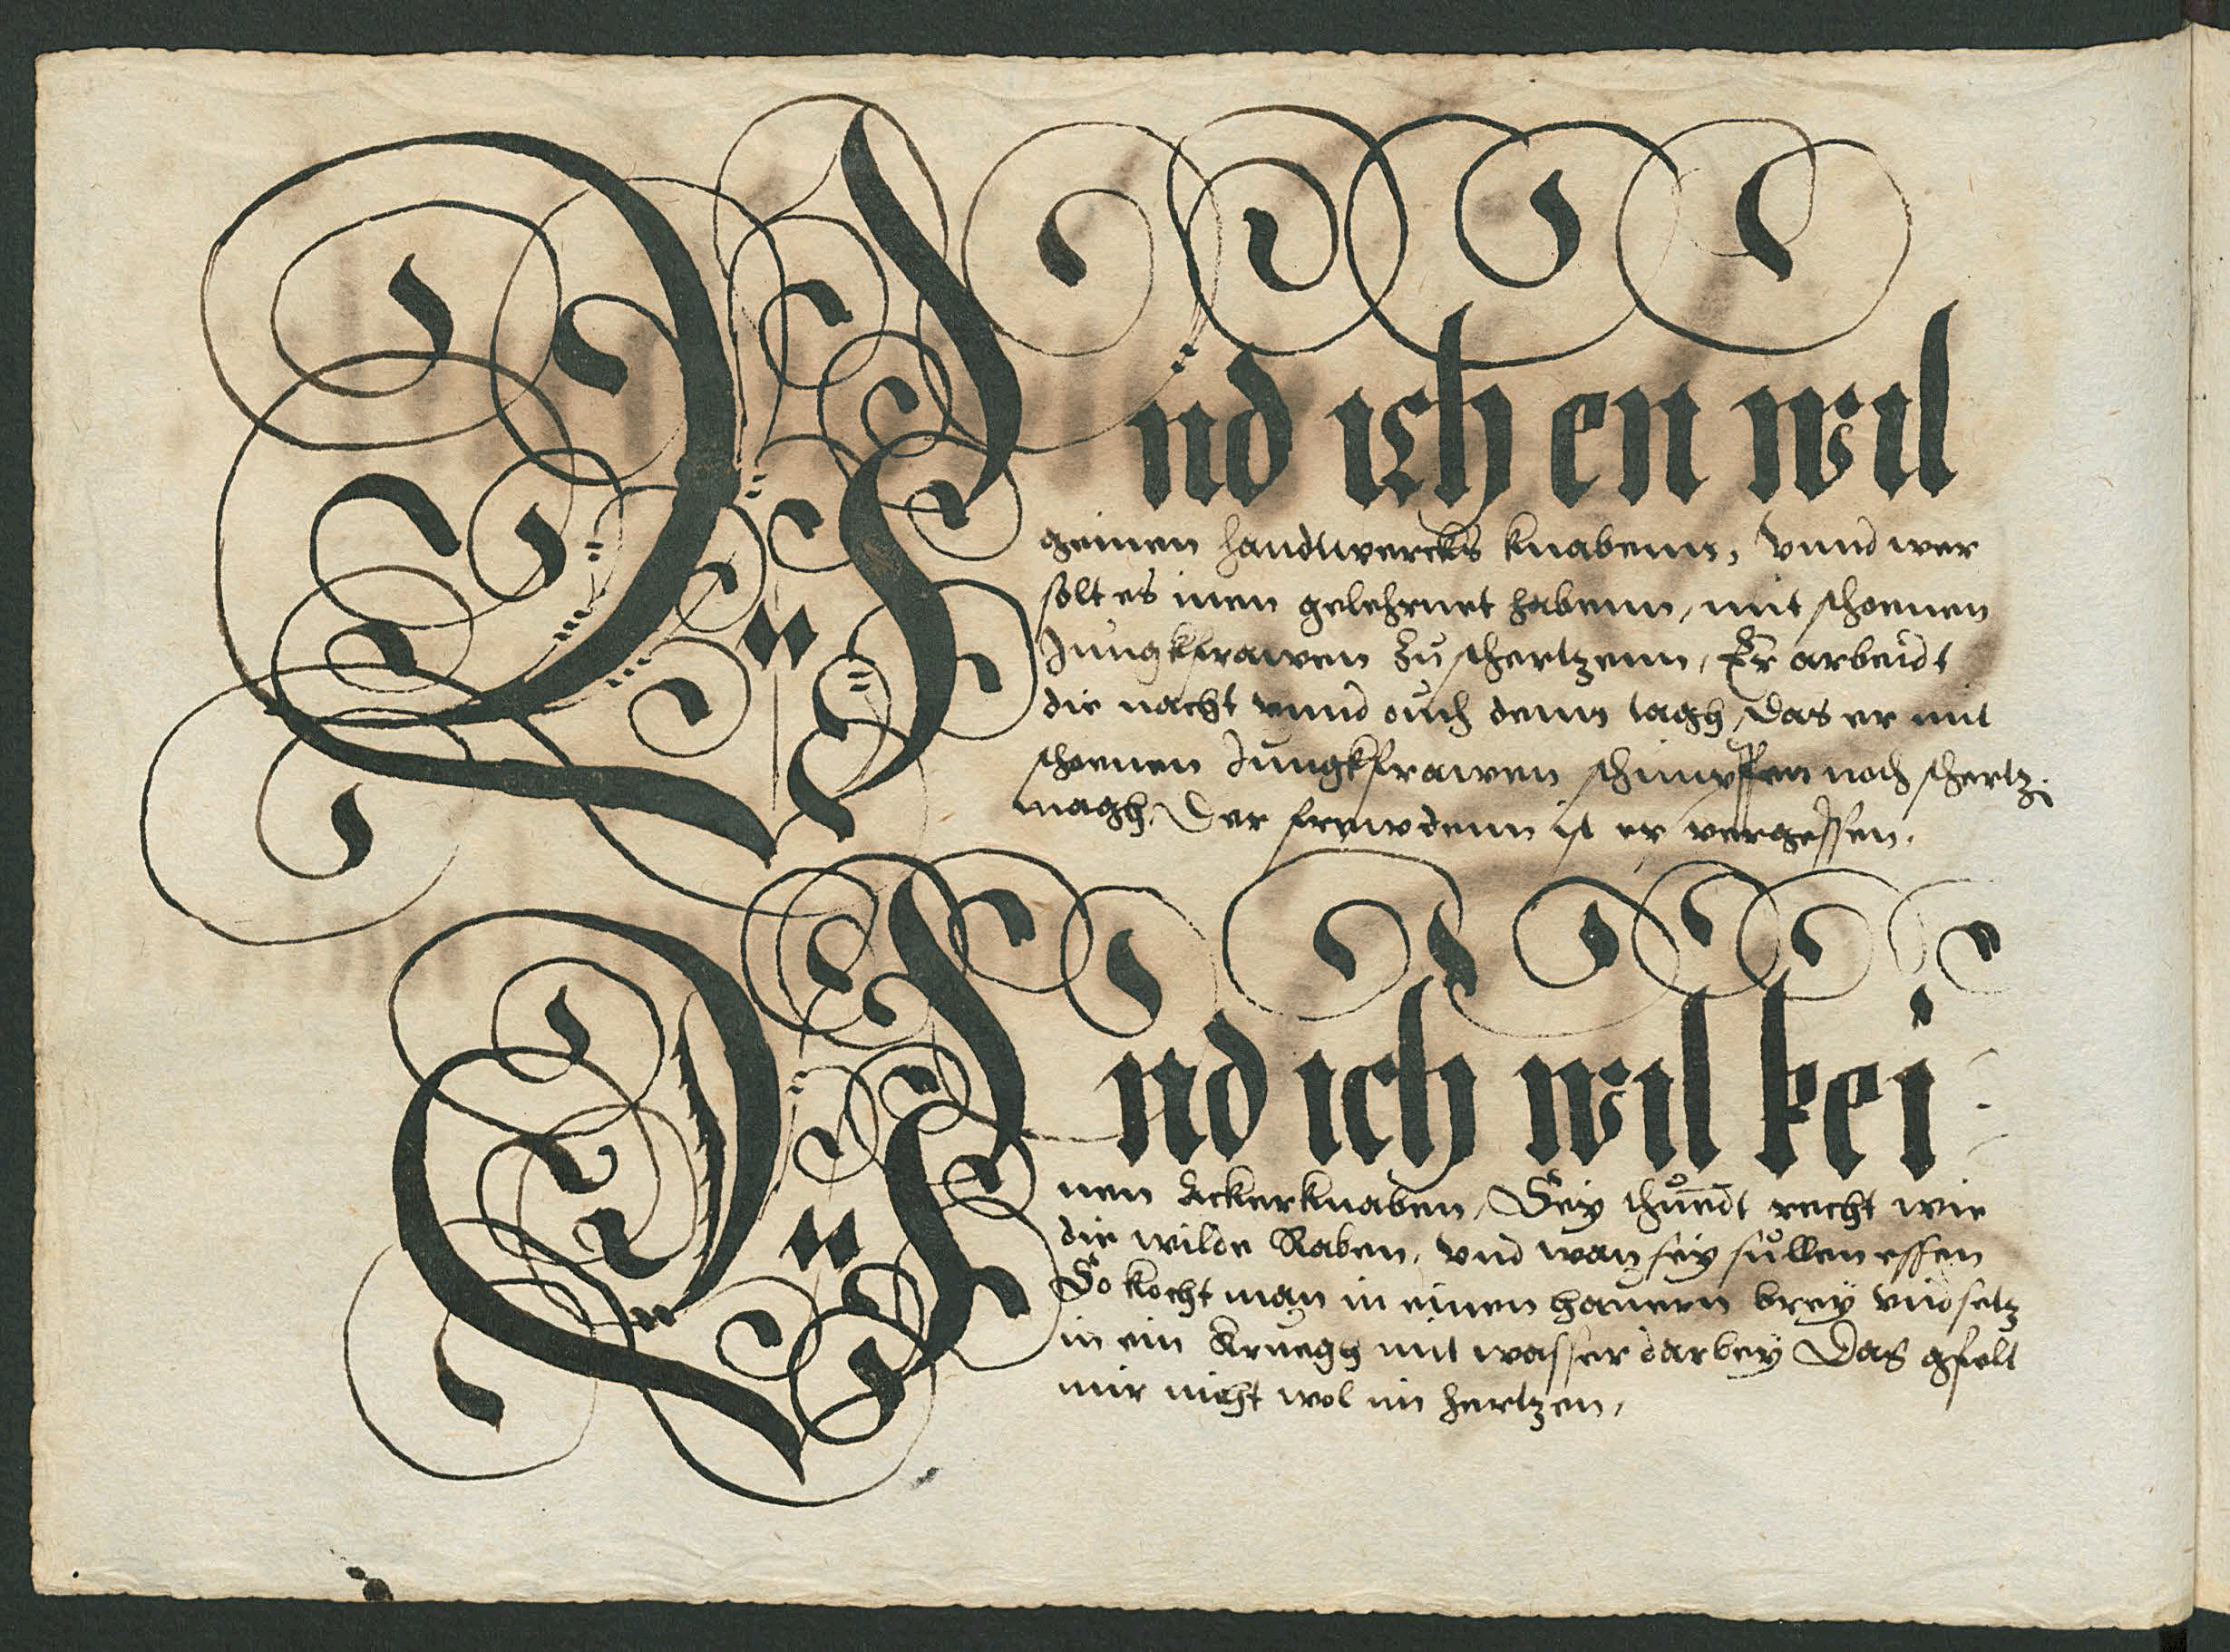 Vnd ich en wil
geinen handtwercks knabenn, Vnnd wer
solt es inen gelehrnet habenn, mit schoenen
Jungkfrawen zu schertzenn, Er arbeidt
die nacht vnnd ouch denn tagh, Das er mit
schoenen Jungkfrawen schimpffen noch schertz.
magh, Der frewdenn ist er vergessen.
Vnd ich wil kei
nen Ackerknaben, Sey thuendt recht wie
die wilde Raben, vnd wan sey sůllen essen
So kocht man in einen hauern brey vnd setz
in ein Kruegh mit wasser darbey Das gfelt
mir nicht wol im hertzen,